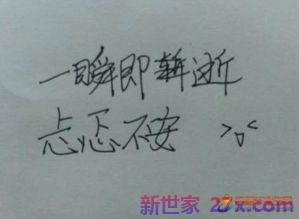 一瞬即逝
忐忑不安 >o<
新世家 27x.com